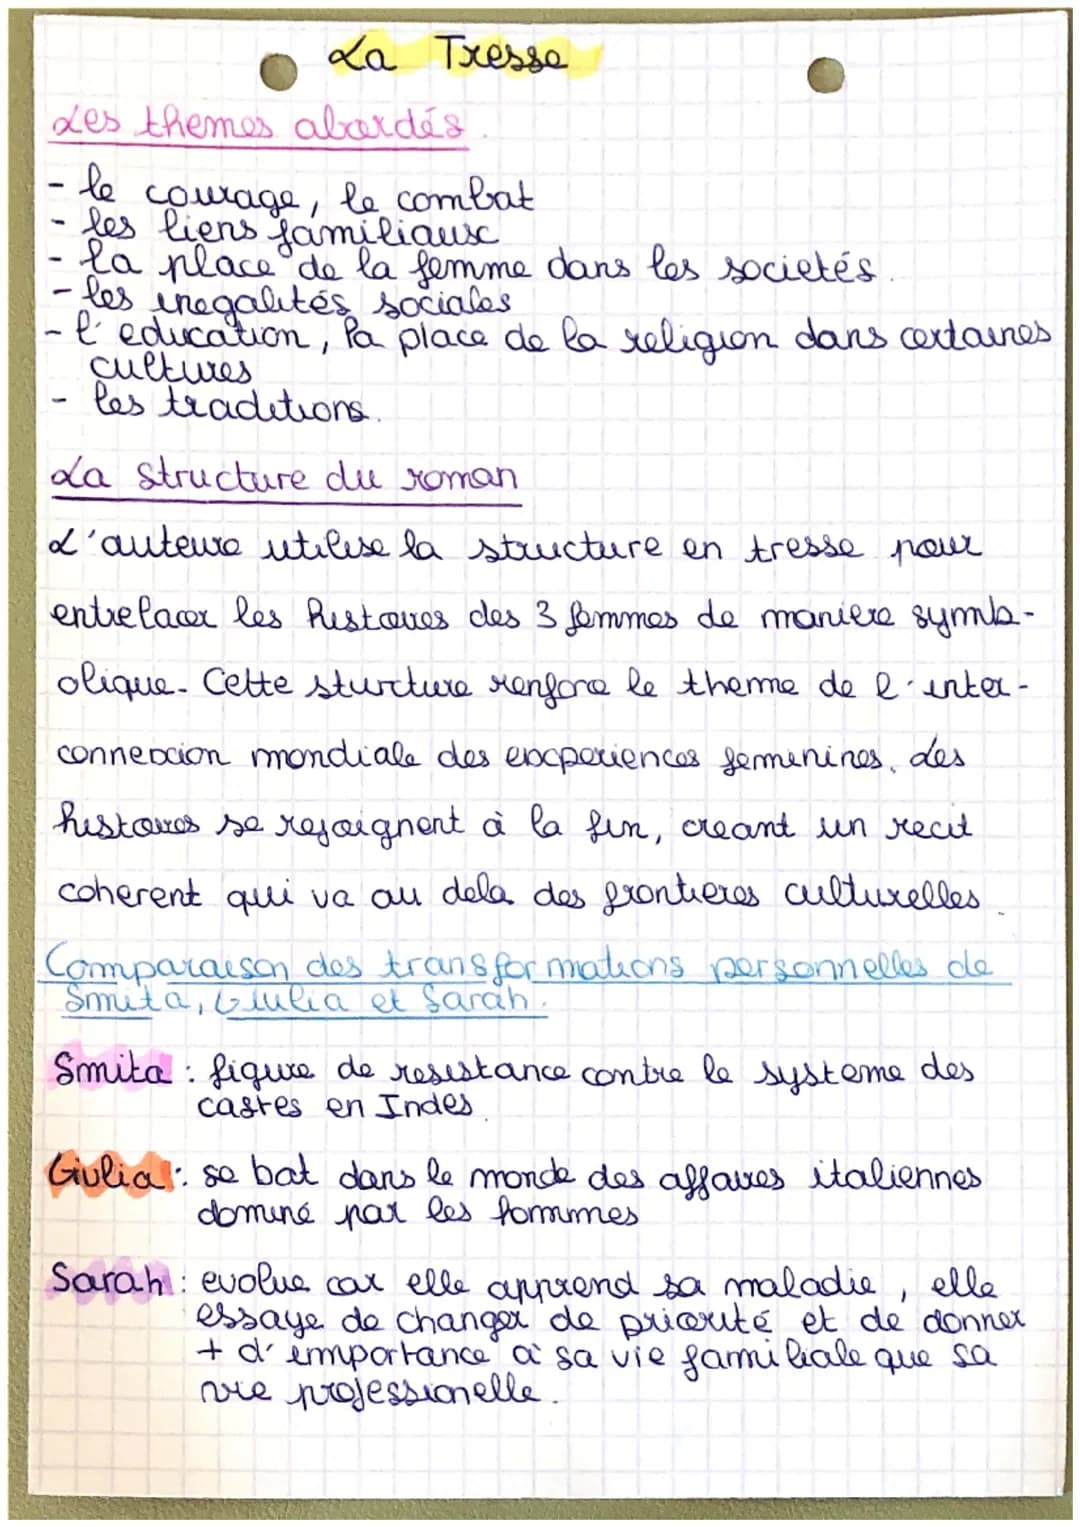 La Tresse
Les themes abordés.
- le courage, le combat
- les liens familiaux
- la place de la femme dans les societés.
- les inegalités sociales
- l'education, la place de la religion dans certaines
cultures
- les traditions.
La structure du roman
L'auteure utilise la structure en tresse pour
entrelacer les histoires des 3 femmes de maniere symb-
olique. Cette sturcture renforce le theme de l'inter-
connexion mondiale des experiences feminines. Les
histoires se rejoignent à la fin, creant un recit
coherent qui va au dela des frontieres culturelles.
Comparaison des transformations personnelles de
Smita, Giulia et Sarah.
Smita : figure de resistance contre le systeme des
castes en Indes.
Giulia : se bat dans le monde des affaires italiennes
dominé par les hommmes
Sarah : evolue car elle apprend sa maladie, elle
essaye de changer de priorité et de donner
+ d'importance à sa vie familiale que sa
vie professionelle.